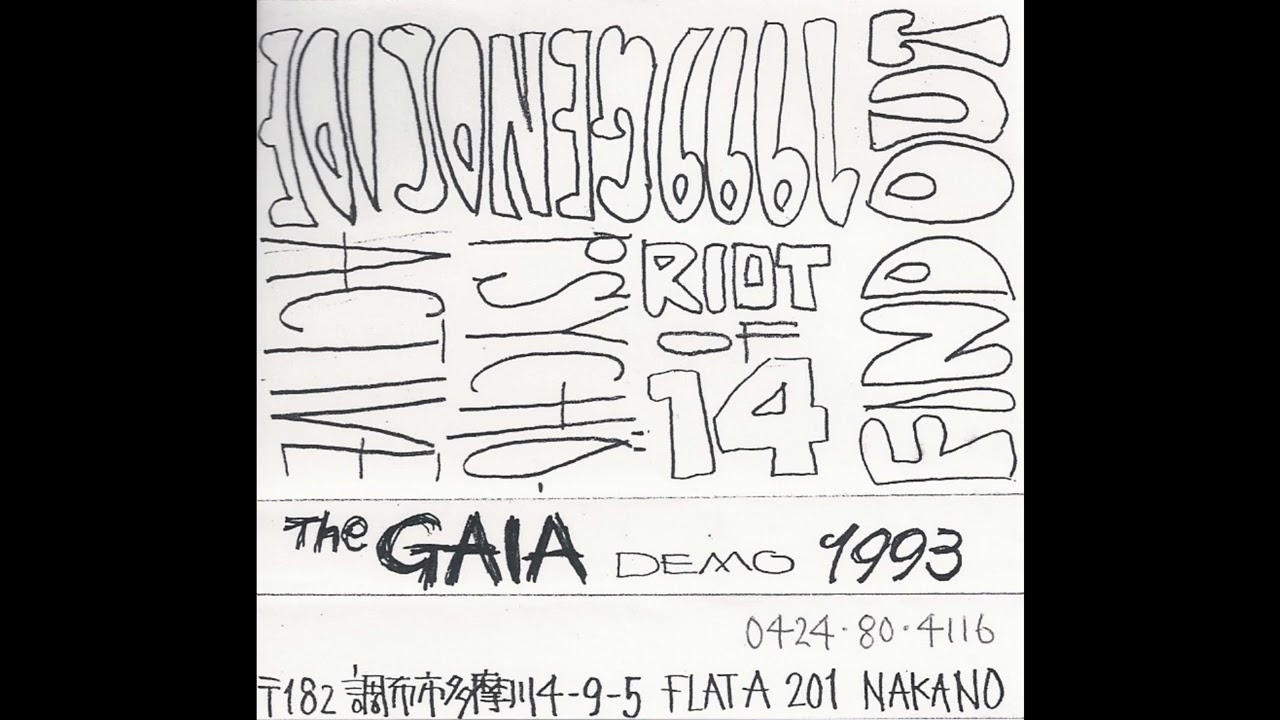 1999 GENOCIDE
ACTIVE
PSYCHO
RIOT
OF
14
FIND OUT
The GAIA DEMO 1993
0424・80・4116
〒182 調布市多摩川4-9-5 FLAT A 201 NAKANO